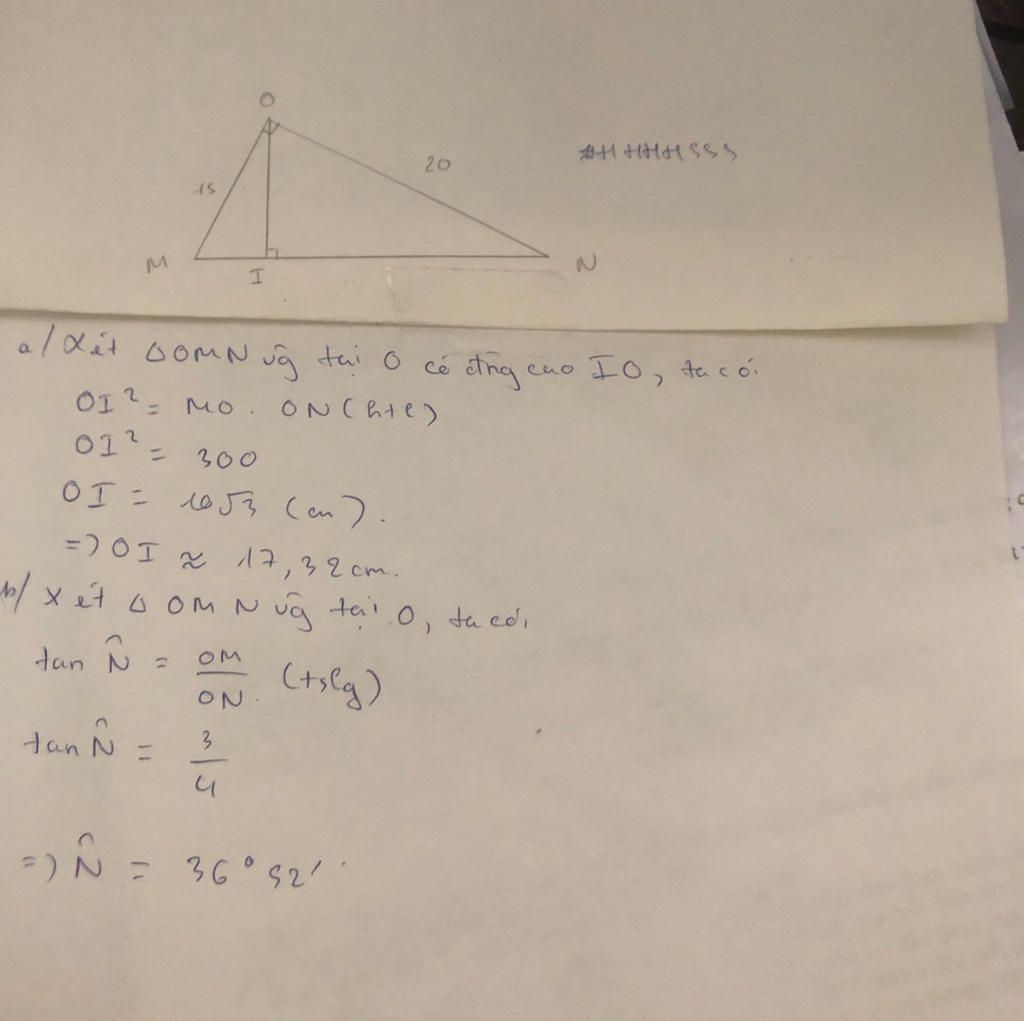 O
15
20
M
I
N
a/ Xét △OMN vg̃ tại O có đường cao IO, ta có:
OI² = MO . ON (htl)
OI² = 300
OI = 10√3 (cm).
=> OI ≈ 17,32cm.
b/ Xét △ OMN vg̃ tại O, ta có,
tan N̂ = OM/ON (tslg)
tan N̂ = 3/4
=> N̂ = 36°52'